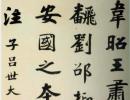 韋昭王肅
飜劉邵
安國之本
注 子呂世大